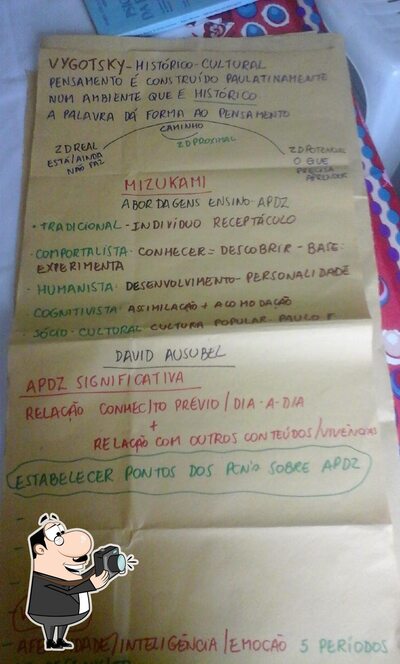 VYGOTSKY - HISTÓRICO - CULTURAL
PENSAMENTO É CONSTRUÍDO PAULATINAMENTE
NUM AMBIENTE QUE É HISTÓRICO
A PALAVRA DÁ FORMA AO PENSAMENTO
CAMINHO
ZD PROXIMAL
ZD REAL
ESTÁ/AINDA
NÃO FAZ
ZD POTENCIAL
O QUE
PRECISA
APRENDER
MIZUKAMI
ABORDAGENS ENSINO-APDZ
• TRADICIONAL - INDIVÍDUO RECEPTÁCULO
• COMPORTALISTA - CONHECER = DESCOBRIR - BASE:
EXPERIMENTA
• HUMANISTA DESENVOLVIMENTO - PERSONALIDADE
COGNITIVISTA ASSIMILAÇÃO + ACOMODAÇÃO
• SÓCIO-CULTURAL CULTURA POPULAR - PAULO F
DAVID AUSUBEL
APDZ SIGNIFICATIVA
RELAÇÃO CONHECITO PRÉVIO / DIA-A-DIA
+
RELAÇÃO COM OUTROS CONTEÚDOS/VIVÊNCIAS
ESTABELECER PONTOS DOS PCN's SOBRE APDZ
- AFETIVIDADE/INTELIGÊNCIA/EMOÇÃO 5 PERÍODOS